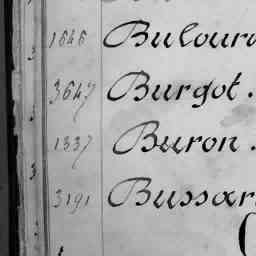 1646 Bulour
3647 Burgot.
1337 Buron.
3191 Bussar